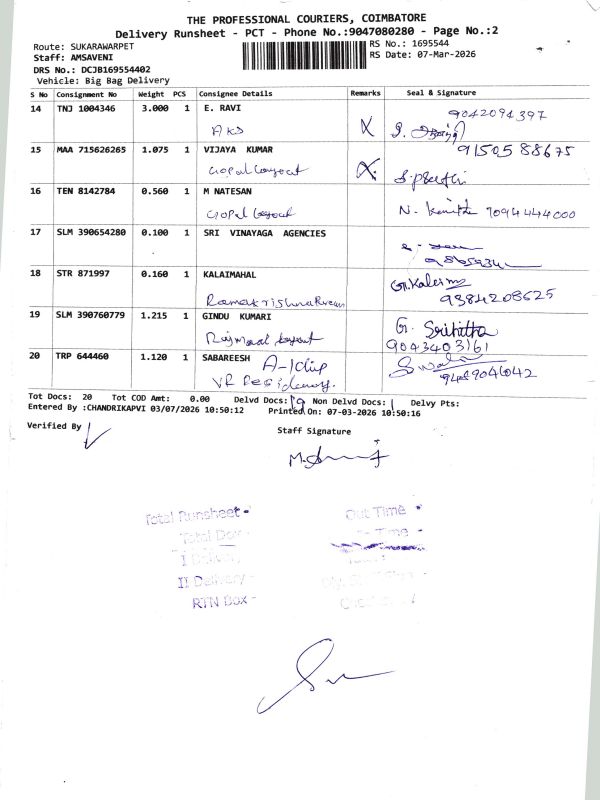 THE PROFESSIONAL COURIERS, COIMBATORE
Delivery Runsheet - PCT - Phone No.:9047080280 - Page No.:2
Route: SUKARAWARPET
RS No.: 1695544
Staff: AMSAVENI
RS Date: 07-Mar-2026
DRS No.: DCJB169554402
Vehicle: Big Bag Delivery
S No Consignment No Weight PCS Consignee Details Remarks Seal & Signature
14 TNJ 1004346 3.000 1 E. RAVI 9042094397
AKS X
15 MAA 715626265 1.075 1 VIJAYA KUMAR 9150588675
Gopal Layout X
16 TEN 8142784 0.560 1 M NATESAN
Gopal Layout N. 7094444000
17 SLM 390654280 0.100 1 SRI VINAYAGA AGENCIES
18 STR 871997 0.160 1 KALAIMAHAL
Ramakrishnapuram 9384208625
19 SLM 390760779 1.215 1 GINDU KUMARI G. Srihitha
Rajmaal Layout 9043403161
20 TRP 644460 1.120 1 SABAREESH A-1 Chip
VR Residency 9489046042
Tot Docs: 20 Tot COD Amt: 0.00 Delvd Docs: 19 Non Delvd Docs: 1 Delvy Pts:
Entered By :CHANDRIKAPVI 03/07/2026 10:50:12 Printed On: 07-03-2026 10:50:16
Verified By
Staff Signature
Total Runsheet -
Out Time -
Total Dox -
In Time -
I Delivery
II Delivery -
RTN Dox -